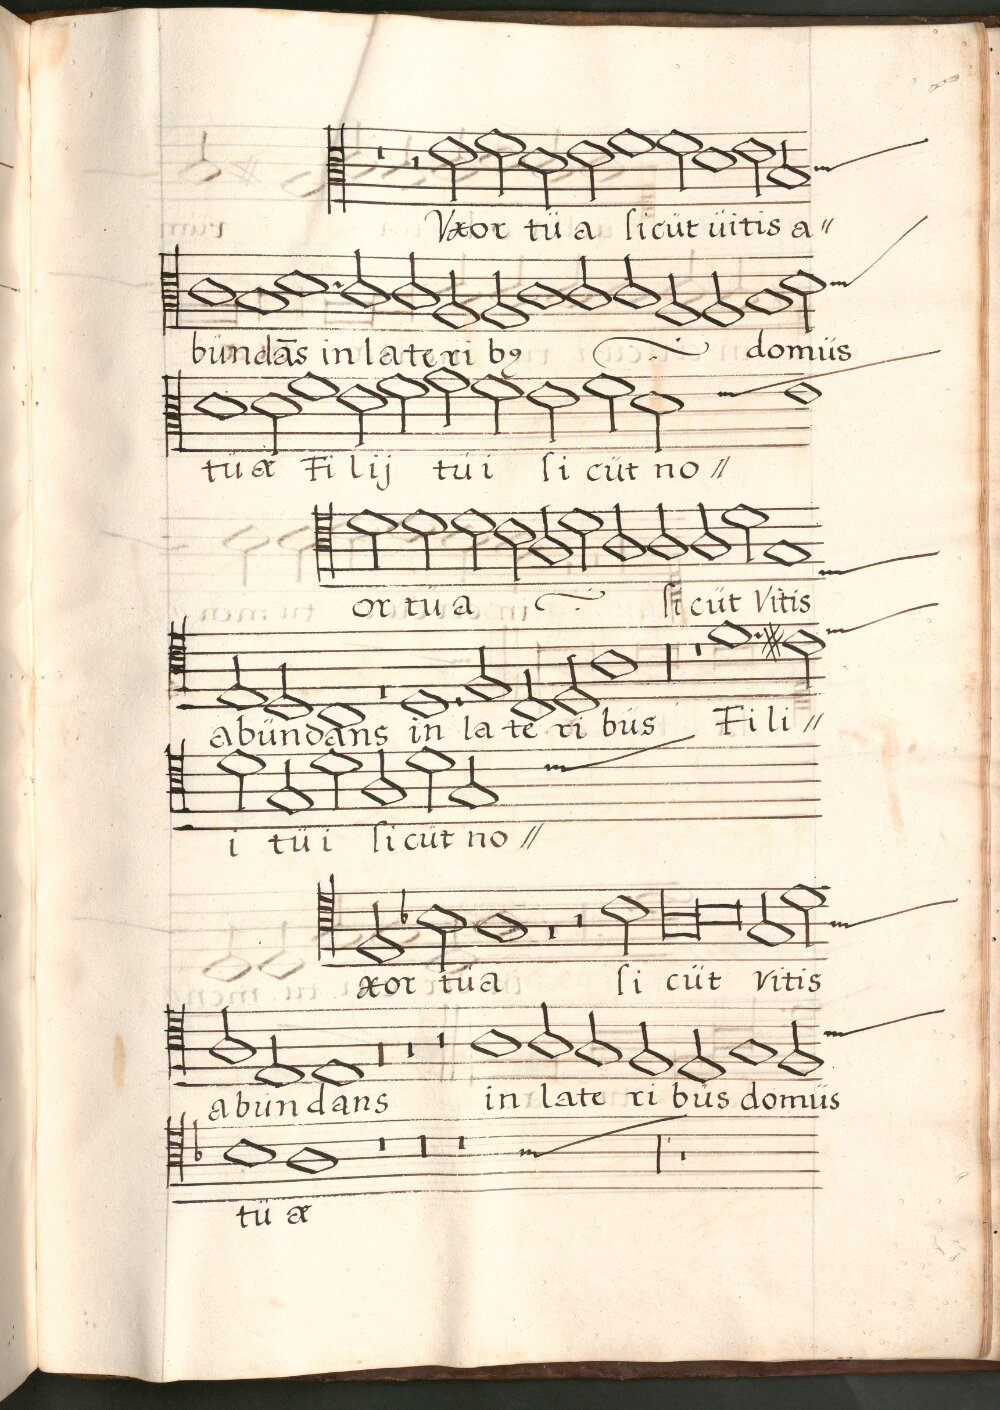 Vxor tü a sicüt üitis a//
bündās in lateri bꝯ domüs
tüæ Fi lij tü i si cüt no //
or tü a si cüt Vitis
abündans in la te ri büs Fi li //
i tü i si cüt no //
xor tü a si cüt vitis
abündans in late ri büs domüs
tü æ